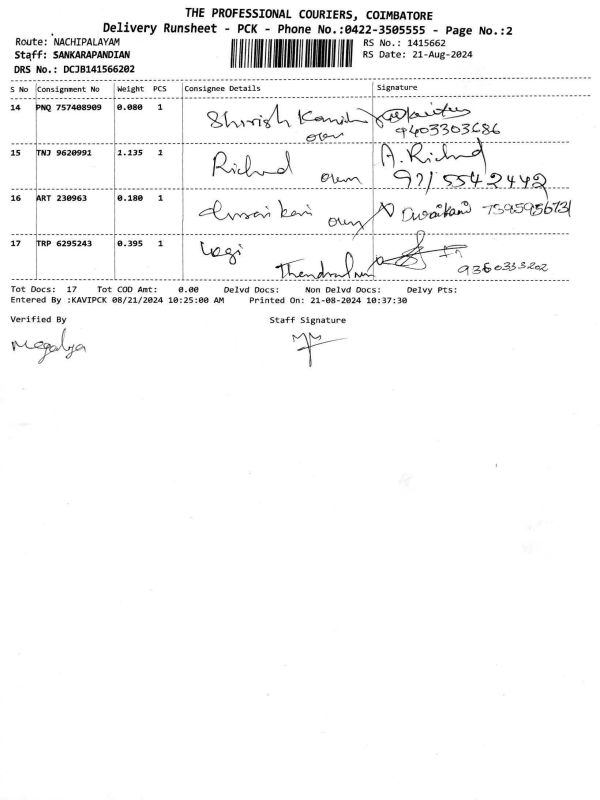 THE PROFESSIONAL COURIERS, COIMBATORE
Delivery Runsheet - PCK - Phone No.:0422-3505555 - Page No.:2
Route: NACHIPALAYAM RS No.: 1415662
Staff: SANKARAPANDIAN RS Date: 21-Aug-2024
DRS No.: DCJB141566202
S No Consignment No Weight PCS Consignee Details Signature
14 PNQ 757408909 0.080 1 Shirish
9403303686
15 TNJ 9620991 1.135 1 Richard A. Richard
own 9715542442
16 ART 230963 0.180 1 Duraikani
own
17 TRP 6295243 0.395 1 Yogi
9360333202
Tot Docs: 17 Tot COD Amt: 0.00 Delvd Docs: Non Delvd Docs: Delvy Pts:
Entered By :KAVIPCK 08/21/2024 10:25:00 AM Printed On: 21-08-2024 10:37:30
Verified By Staff Signature